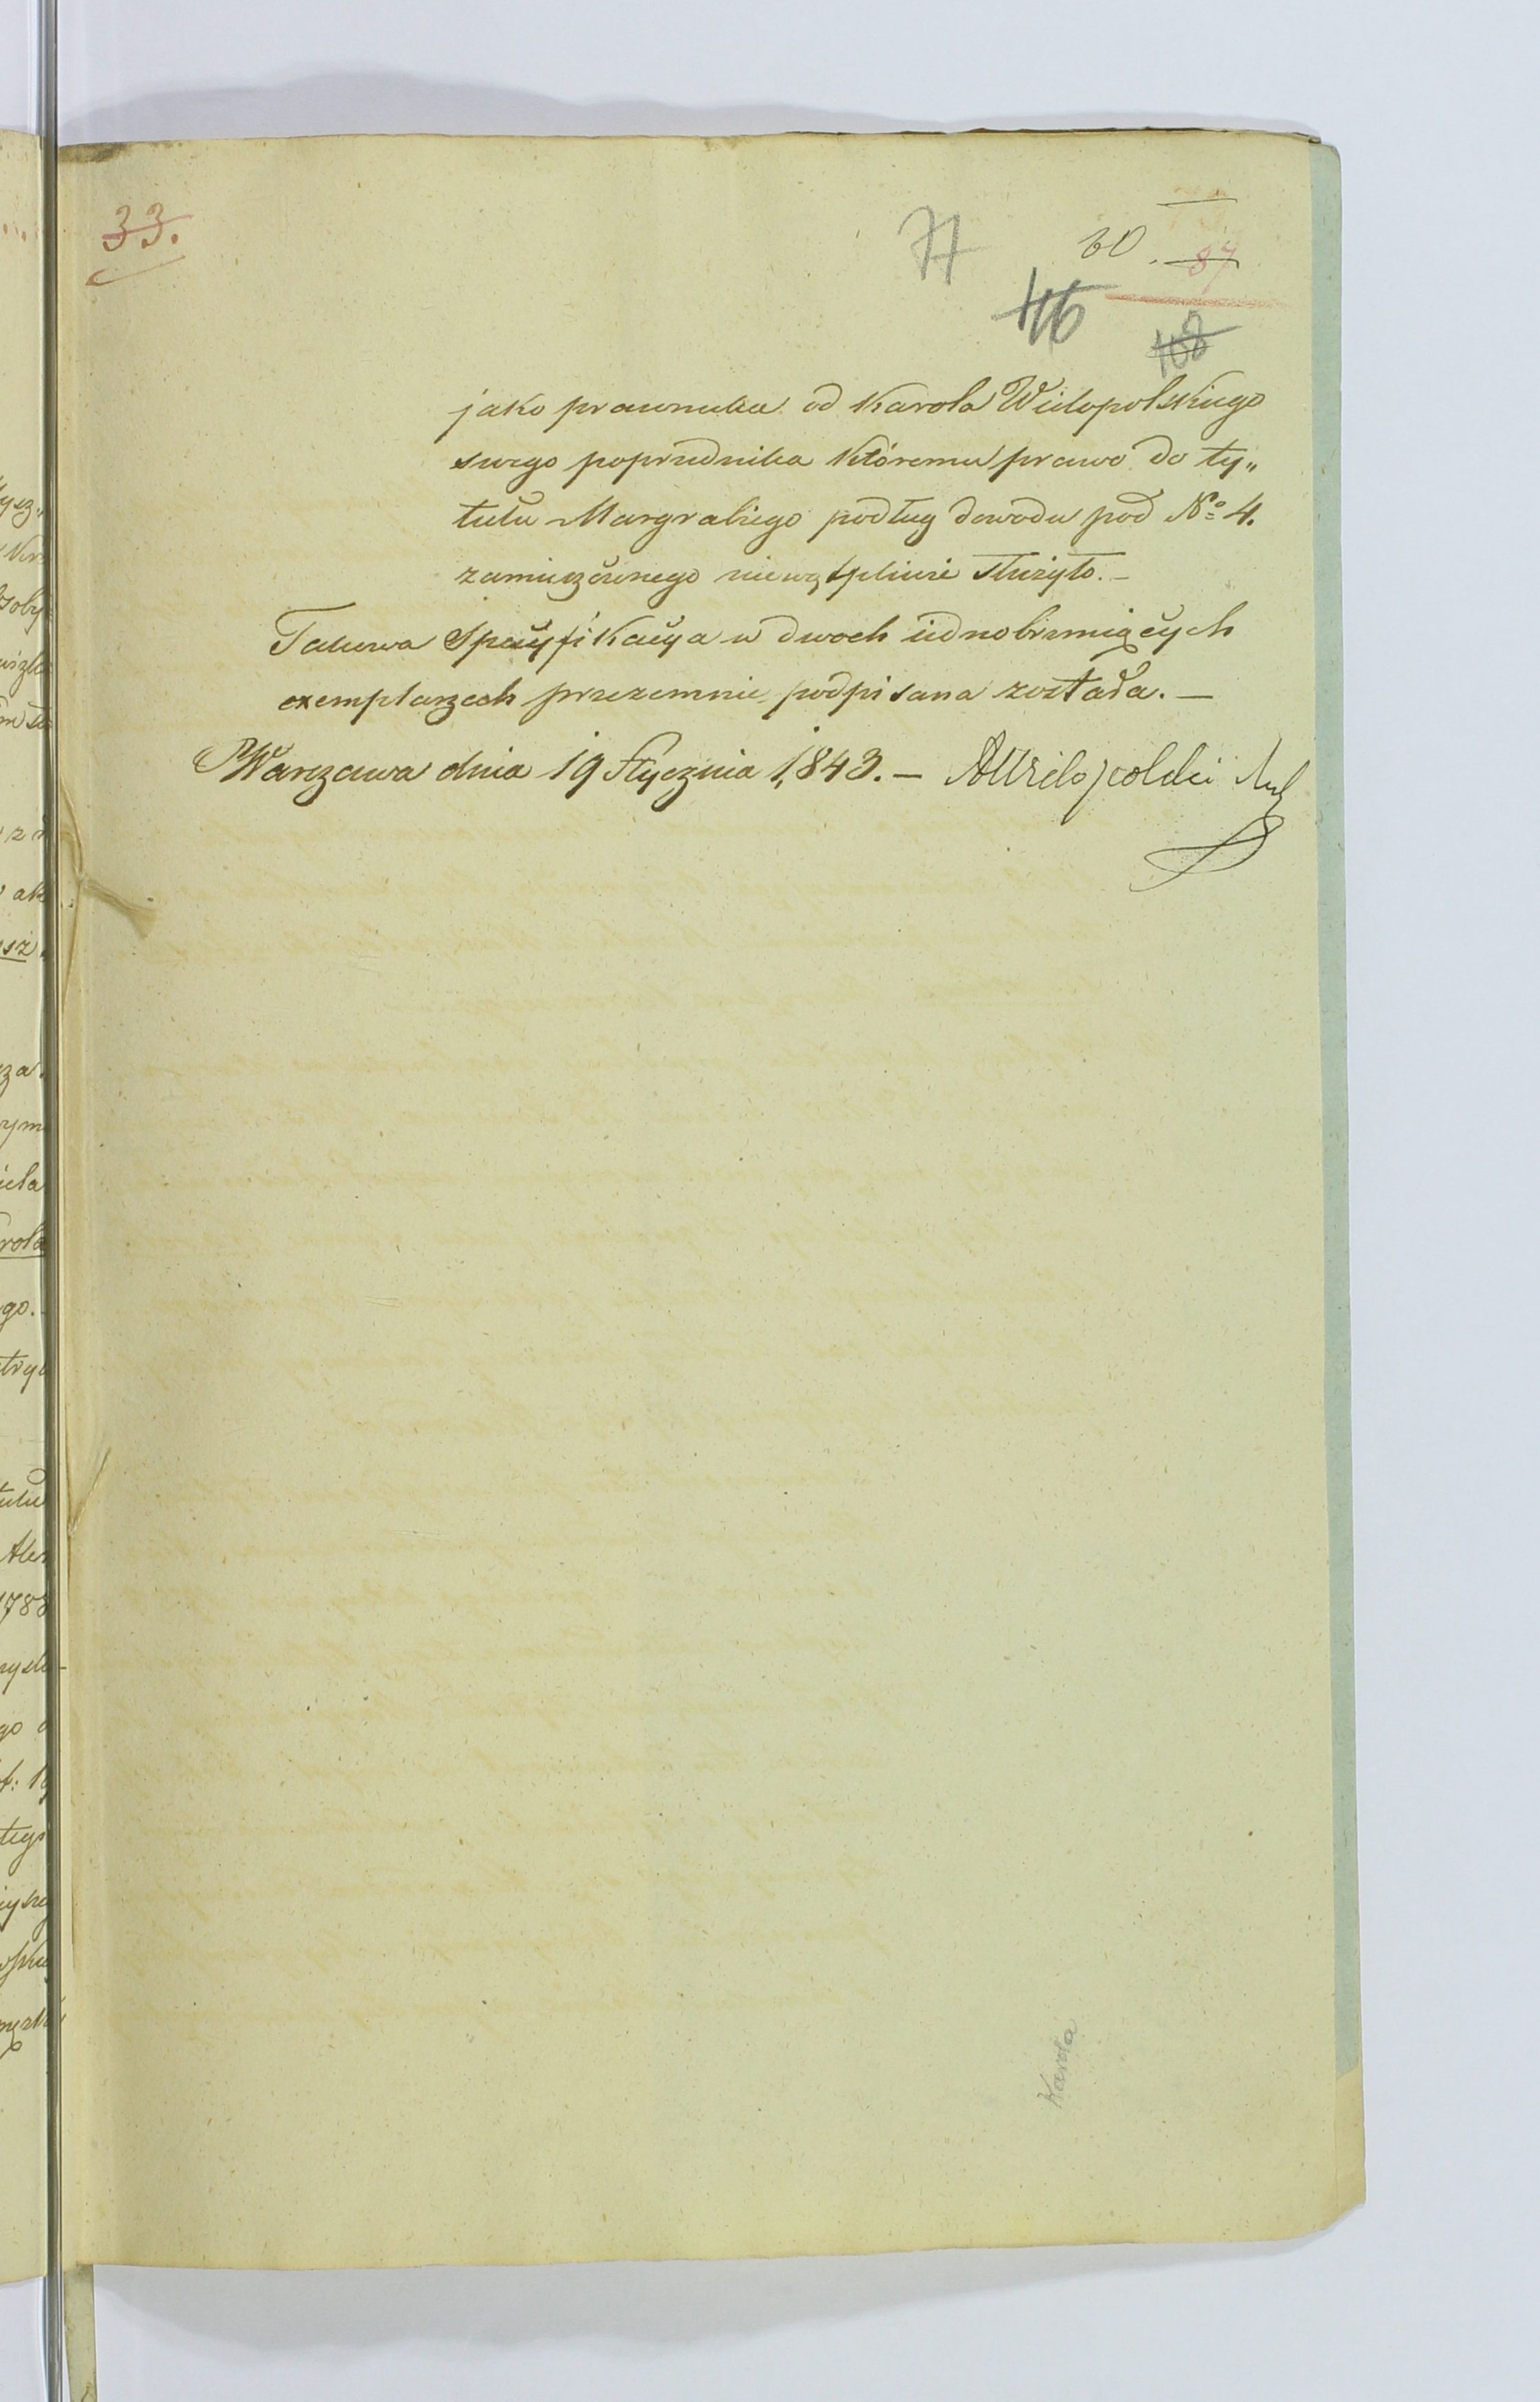 33.
77
60.
87
116
108
jako prawnuka od Karola Wielopolskiego
swego poprzednika któremu prawo do ty„
tułu Margrabiego podług dowodu pod No 4.
zamieszczonego niewątpliwie służyło.—
Takowa Specyfikacya w dwoch jednobrzmiących
exemplarzach przezemnie podpisana została.—
Warszawa dnia 19 Stycznia 1,843.— AWielopolski
Karola